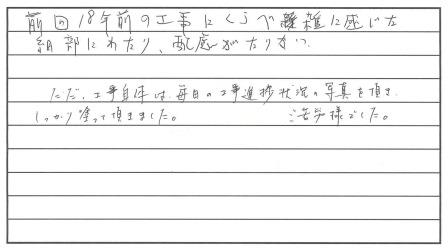 前回18年前の工事にくらべ雑に感じた
細部にわたり、配慮がたりない
ただ、工事自体は毎日の工事進捗状況の写真を頂き
しっかり塗って頂きました。 ご苦労様でした。